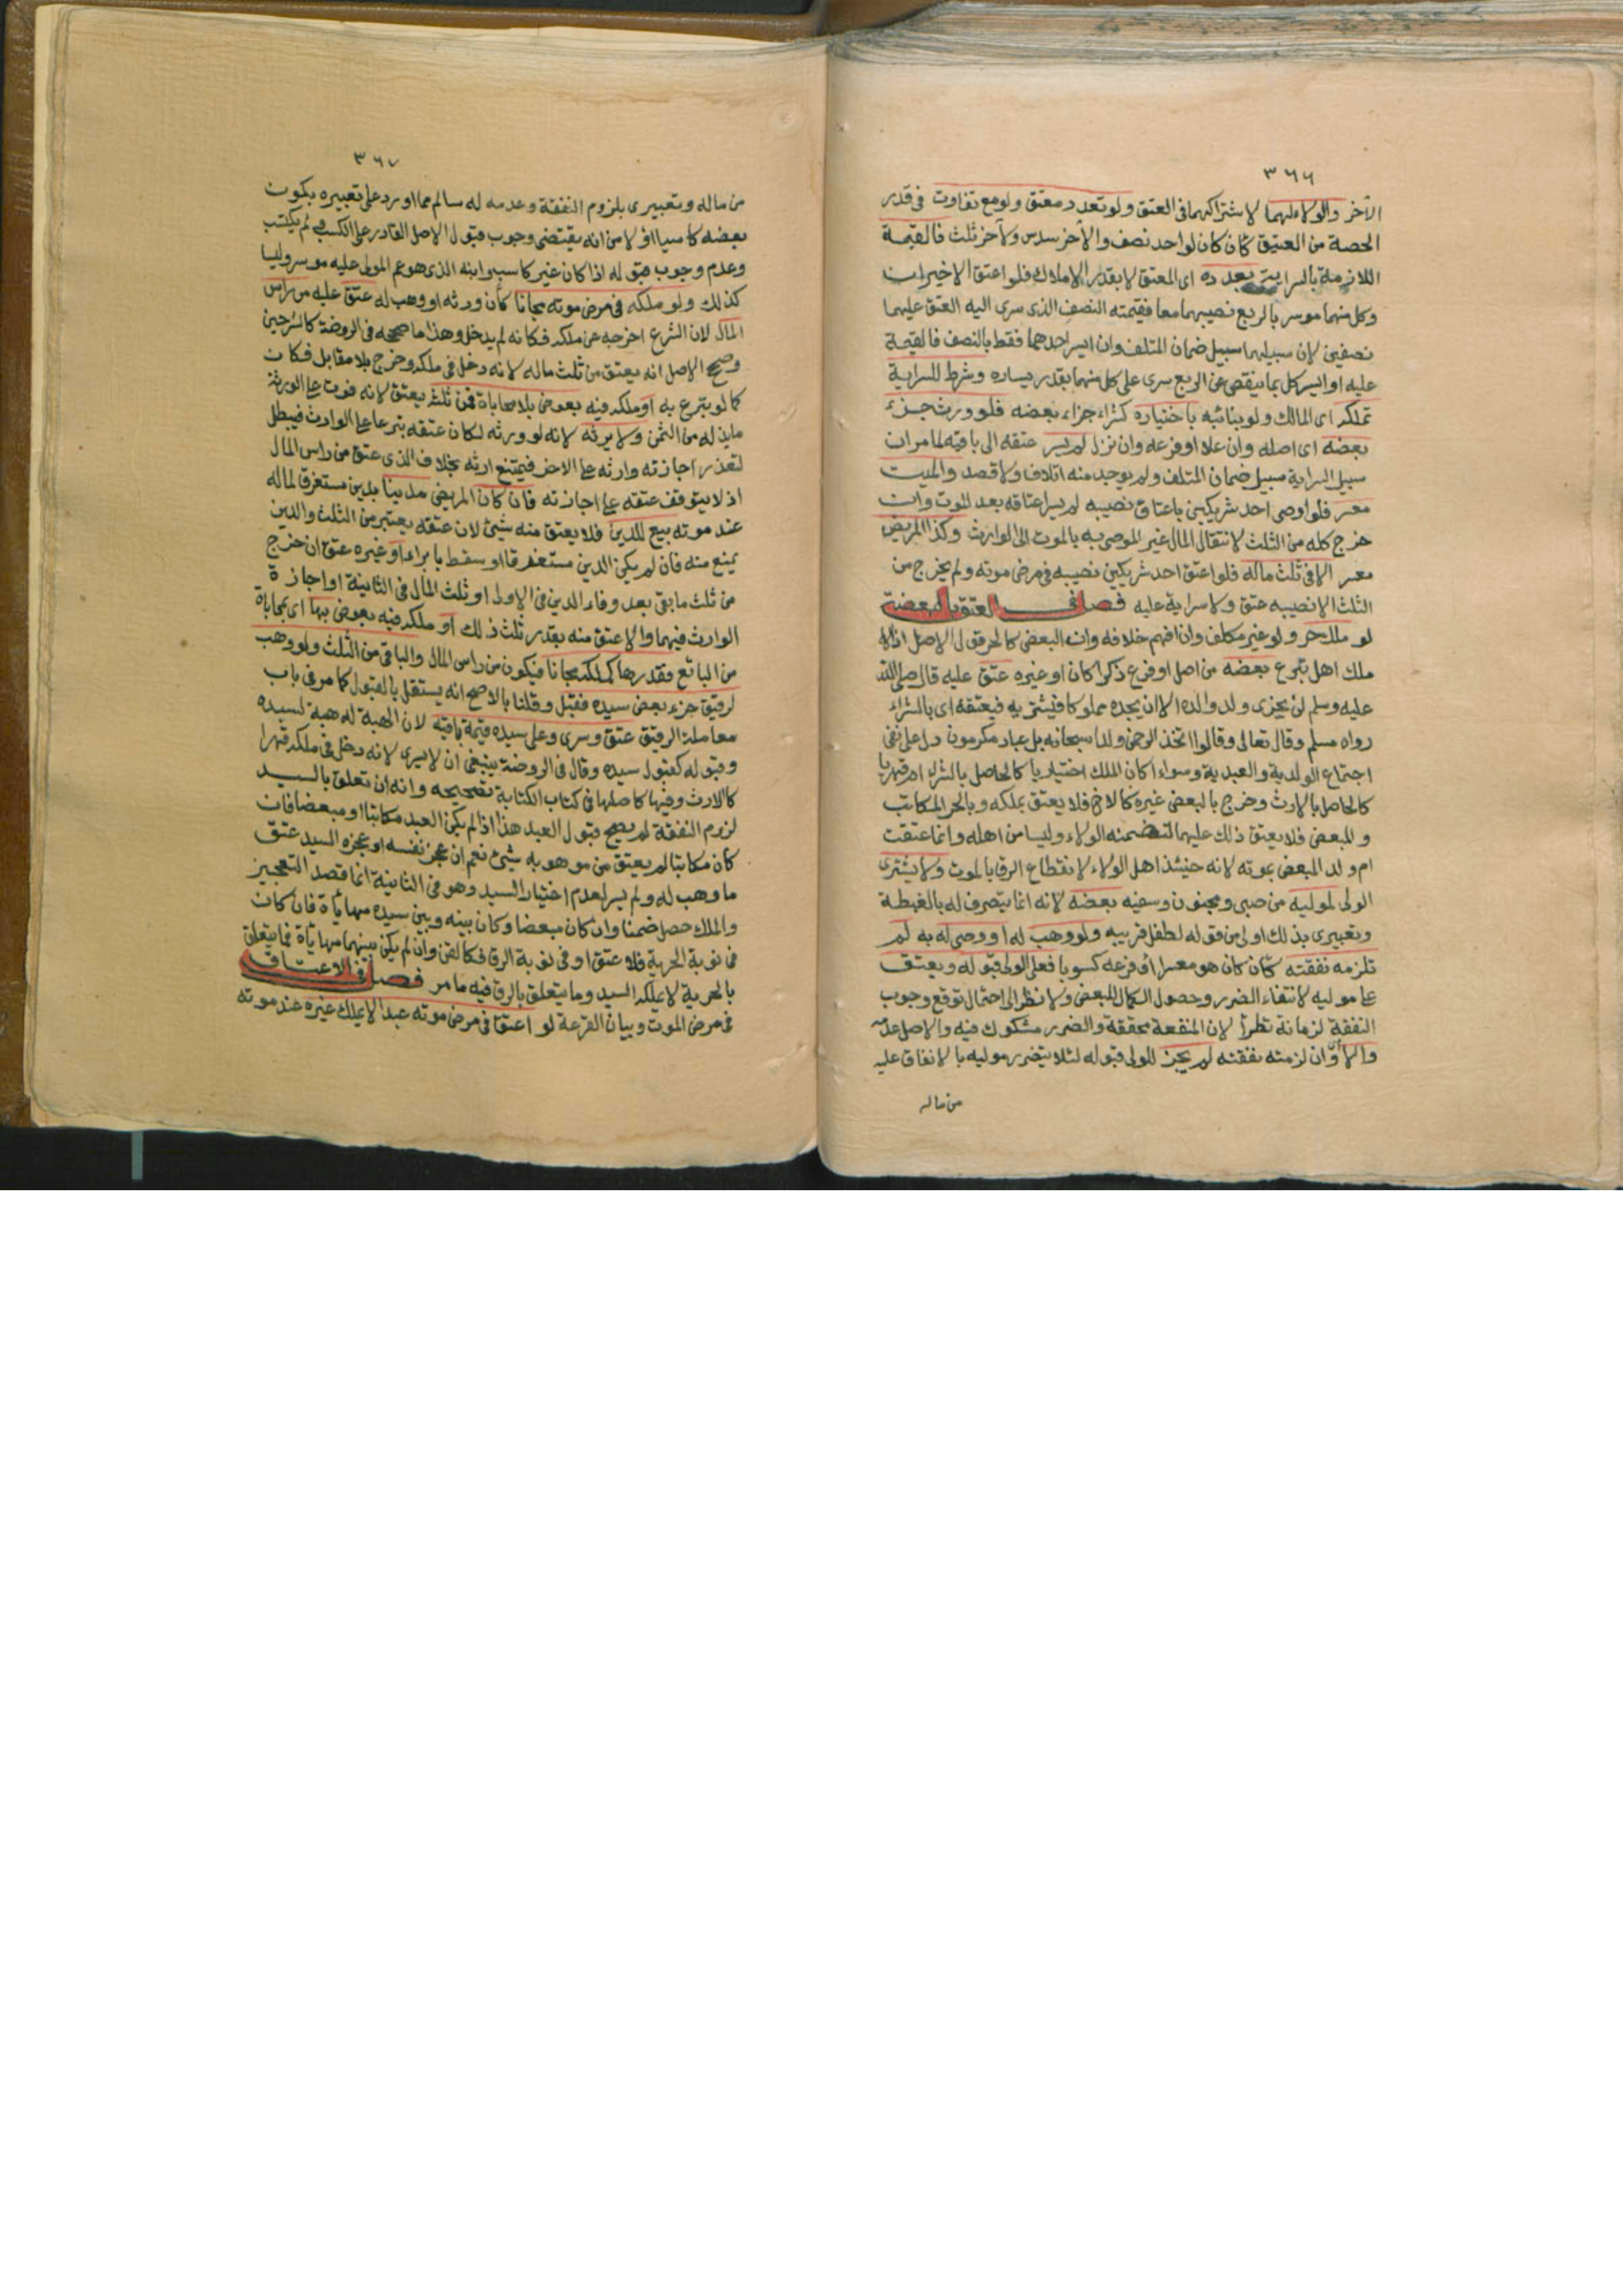 ٣٦٦
الآخر والولاء لهما لاشتراكهما فى العتق ولو تعدد معتق ولو مع تفاوت فى قدر
الحصة من العتيق كأن كان لواحد نصف والآخر سدس ولآخر ثلث فالقيمة
اللازمة بالسراية بعدده اى المعتق لا بقدر الاملاك فلو اعتق الاخيران
وكل منهما موسر بالربع نصيبهما معا فقيمة النصف الذى سرى اليه العتق عليهما
نصفين لان سبيلهما سبيل ضمان المتلف وان ايسر احدهما فقط بالنصف فالقيمة
عليه او ايسر كل بما ينقص عن الربع سرى على كل منهما بقدر يساره وشرط للسراية
تملكه اى المالك ولو بنائبه باختياره كشراء جزء بعضه فلو ورث جزء
بعضه اى اصله وان علا او فرعه وان نزل لم يسر عتقه الى باقيه لما مر ان
سبيل السراية سبيل ضمان المتلف ولم يوجد منه اتلاف ولا قصد والميت
معسر فلو اوصى احد شريكين باعتاق نصيبه لم يسر اعتاقه بعد الموت وان
خرج كله من الثلث لانتقال المال غير الموصى به بالموت الى الوارث وكذا المريض
معسر الا فى ثلث ماله فلو اعتق احد شريكين نصيبه فى مرض موته ولم يخرج من
الثلث الا نصيبه عتق ولا سراية عليه فصل فى العتق بالبعضية
لو ملك حر ولو غير مكلف وان افهم خلافه وان البعض كالحر قول الاصل اذا
ملك اهل تبرع بعضه من اصل او فرع ذكرا كان او غيره عتق عليه قال صلى الله
عليه وسلم لن يجزى ولد والده الا ان يجده مملوكا فيشتريه فيعتقه اى بالشراء
رواه مسلم وقال تعالى وقالوا اتخذ الرحمن ولدا سبحانه بل عباد مكرمون دل على نفى
اجتماع الولدية والعبدية وسواء اكان الملك اختياريا كالحاصل بالشراء ام قهريا
كالحاصل بالارث وخرج بالبعض غيره كالاخ فلا يعتق بملكه وبالحر المكاتب
والمبعض فلا يعتق ذلك عليهما لتضمنه الولاء وليسا من اهله وانما عتقت
ام ولد المبعض بموته لانه حينئذ اهل الولاء لانقطاع الرق بالموت ولا يشترى
الولى لموليه من صبى ومجنون وسفيه بعضه لانه انما يتصرف له بالغبطة
وتعبيرى بذلك اولى من قوله لطفل قريبه ولو وهب له او وصى له به لم
تلزمه نفقته كأن كان هو معسرا او فرعه كسوبا فعلى الولى قبوله ويعتق
على موليه لانتفاء الضرر وحصول الكمال للبعض ولا نظر الى احتمال توقع وجوب
النفقة لزمانة تطرأ لان المنفعة محققة والضرر مشكوك فيه والاصل عدمه
والا وان لزمته نفقته لم يجز للولى قبوله لئلا يتضرر موليه بالانفاق عليه
من ماله
٣٦٧
من ماله وتعبيرى بلزوم النفقة وعدمه له سالم مما اورد على تعبيره بكون
بعضه كاسبا او لا من انه يقتضى وجوب قبول الاصل القادر على الكسب لم يكتسب
وعدم وجوب قبوله اذا كان غير كاسب وابنه الذى هو عم المولى عليه موسر وليسا
كذلك ولو ملكه فى مرض موته مجانا كأن ورثه او وهب له عتق عليه من رأس
المال لان الشرع اخرجه عن ملكه فكانه لم يدخل وهذا ما صححه فى الروضة كالشرحين
وصحح الاصل انه يعتق من ثلث ماله لانه دخل فى ملكه وخرج بلا مقابل فكان
كما لو تبرع به او ملكه فيه بعوض بلا محاباة فمن ثلثه يعتق لانه فوت على الورثة
ما بذله من الثمن ولا يرثه لانه لو ورثه لكان عتقه تبرعا على الوارث فيبطل
لتعذر اجازته وارثه على الاخر فيمتنع ارثه بخلاف الذى عتق من راس المال
اذ لا يتوقف عتقه على اجازته فان كان المريض مدينا بدين مستغرق لماله
عند موته بيع للدين فلا يعتق منه شىء لان عتقه يعتبر من الثلث والدين
يمنع منه فان لم يكن الدين مستغرقا او سقط بابراء او غيره عتق ان خرج
من ثلث ما بقى بعد وفاء الدين فى الاولى او ثلث المال فى الثانية او اجازة
الوارث فيهما والا عتق منه بقدر ثلث ذلك او ملكه فيه بعوض بها اى بمحاباة
من البائع فقدرها كملكه مجانا فيكون من راس المال والباقى من الثلث ولو وهب
لرقيق جزء بعض سيده فقبل وقلنا بالاصح انه يستقل بالقبول كما مر فى باب
معاملة الرقيق عتق وسرى وعلى سيده قيمة باقيه لان الهبة له هبة لسيده
وقبوله كقبول سيده وقال فى الروضة ينبغى ان لا يسرى لانه دخل فى ملكه قهرا
كالارث وفيها كاصلها فى كتاب الكتابة تصحيحه وانه ان تعلق بالسيد
لزوم النفقة لم يصح قبول العبد هذا اذا لم يكن العبد مكاتبا او مبعضا فان
كان مكاتبا لم يعتق من موهوبه شىء نعم ان عجز نفسه او عجزه السيد عتق
ما وهب له ولم يسر لعدم اختيار السيد وهو فى الثانية انما قصد التعجيز
والملك حصل ضمنا وان كان مبعضا وكان بينه وبين سيده مهايأة فان كان
فى نوبة الحرية فلا عتق او فى نوبة الرق فكالقن وان لم يكن بينهما مهايأة فما يتعلق
بالحرية لا يملكه السيد وما يتعلق بالرق فيه ما مر فصل فى الاعتاق
فى مرض الموت وبيان القرعة لو اعتق فى مرض موته عبدا لا يملك غيره عند موته